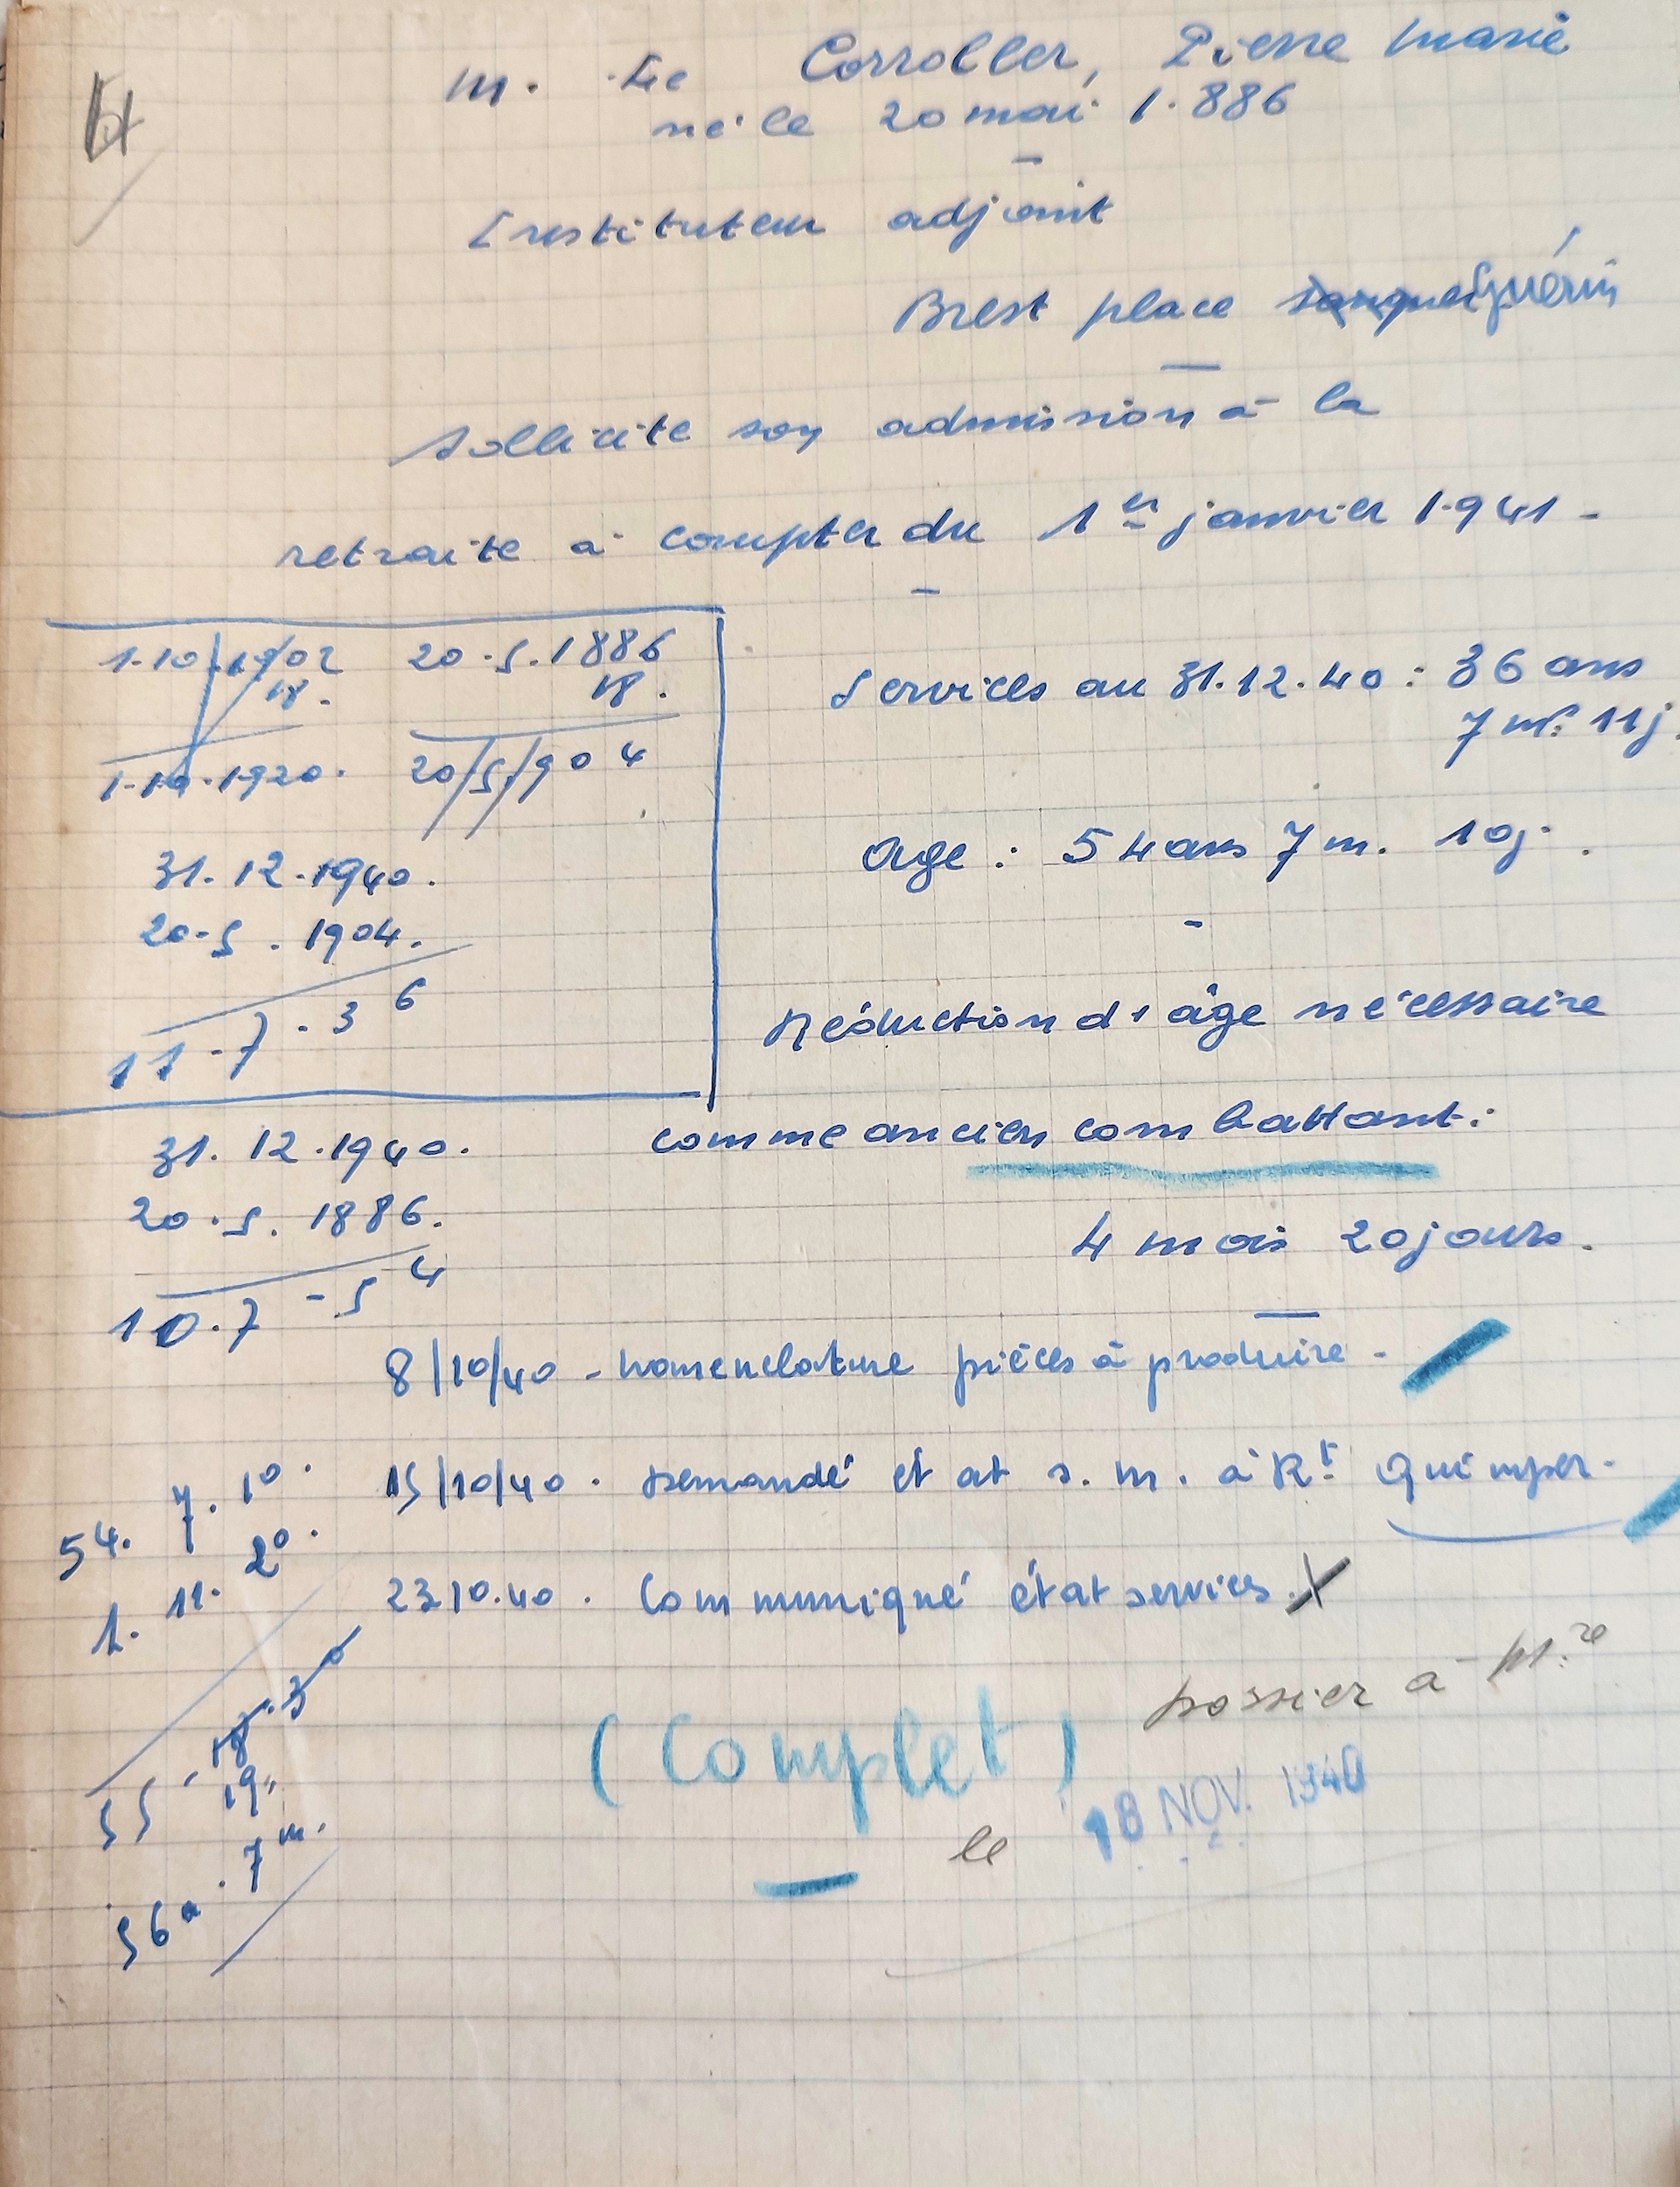 M. Le Corroller, Pierre Marie
né le 20 mai 1.886
Instituteur adjoint
Brest place Guérin
sollicite son admission à la
retraite à compter du 1er janvier 1.941 -
1.10.1902 20.5.1886
18. 18.
1.10.1920. 20/5/904
31.12.1940.
20.5.1904.
11.7.36
Services au 31.12.40 : 36 ans
7 m. 11 j.
Age : 54 ans 7 m. 10 j.
Réduction d'âge nécessaire
comme ancien combattant :
4 mois 20 jours.
31.12.1940.
20.5.1886.
10.7-54
8/10/40 - nomenclature pièces à produire -
15/10/40. Demandé état s. m. à Rt Quimper.
23.10.40. Communiqué état services. X
54. 7. 10.
1. 11. 20.
55. 18. 30
19.
56a. 7m.
(Complet)
Dossier à M.re
le 18 NOV. 1940